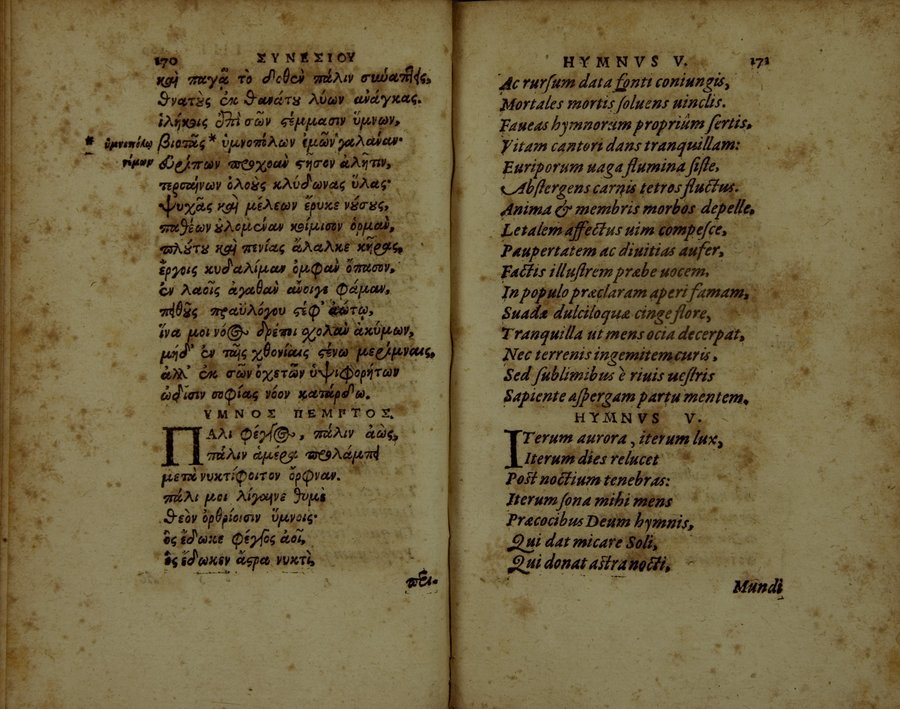 170 ΣΥΝΕΣΙΟΥ
καὶ παγᾷ τὸ δοθὲν πάλιν συνάπτεις,
θνατοὺς ἐκ θανάτου λύων ἀνάγκας.
ἱλήκοις ἐπὶ σῶν στέμμασιν ὕμνων,
* ὑμνοπόλω βιοτὰς * ὑμνοπόλων ἐμῶν γαλάναν·
νέμων Εὐρίπων προχοὰν στῆσον ἀλῆτιν,
τερσαίνων ὀλοοὺς κλύδωνας ὕλας·
ψυχᾶς καὶ μελέων ἔρυκε νούσους,
παθέων οὐλομέναν κοίμισον ὁρμάν,
πλούτου καὶ πενίας ἄλαλκε κῆρας,
ἔργοις κυδαλίμαν ὀμφὰν ὄπασον,
ἐν λαοῖς ἀγαθὰν ἄνοιγε φάμαν,
πειθοῦς πραϋλόγου στέφ' ἀώτῳ,
ἵνα μοι νόος δρέποι σχολὰν ἀκύμων,
μηδ' ἐν ταῖς χθονίαις στένω μερίμναις,
ἀλλ' ἐκ σῶν ὀχετῶν ὑψιφορήτων
ὠδῖσιν σοφίας νόον κατάρδω.
ΥΜΝΟΣ ΠΕΜΠΤΟΣ.
ΠΑΛΙ φέγγος, πάλιν ἀὼς,
πάλιν ἁμέρα προλάμπει
μετὰ νυκτίφοιτον ὄρφναν.
πάλι μοι λίγαινε θυμὲ
θεὸν ὀρθρίοισιν ὕμνοις·
ὃς ἔδωκε φέγγος ἀοῖ,
ὃς ἔδωκεν ἄστρα νυκτὶ,
περι-
HYMNVS V. 171
Ac rursum data fonti coniungis,
Mortales mortis soluens uinclis.
Faueas hymnorum propriûm sertis,
Vitam cantori dans tranquillam:
Euriporum uaga flumina siste,
Abstergens carnis tetros fluctus.
Anima & membris morbos depelle,
Letalem affectus uim compesce,
Paupertatem ac diuitias aufer,
Factis illustrem præbe uocem,
In populo præclaram aperi famam,
Suadæ dulciloquæ cinge flore,
Tranquilla ut mens ocia decerpat,
Nec terrenis ingemitem curis,
Sed sublimibus è riuis uestris
Sapiente aspergam partu mentem.
HYMNVS V.
ITerum aurora, iterum lux,
Iterum dies relucet
Post noctium tenebras:
Iterum sona mihi mens
Præcocibus Deum hymnis,
Qui dat micare Soli,
Qui donat astra nocti,
Mundi